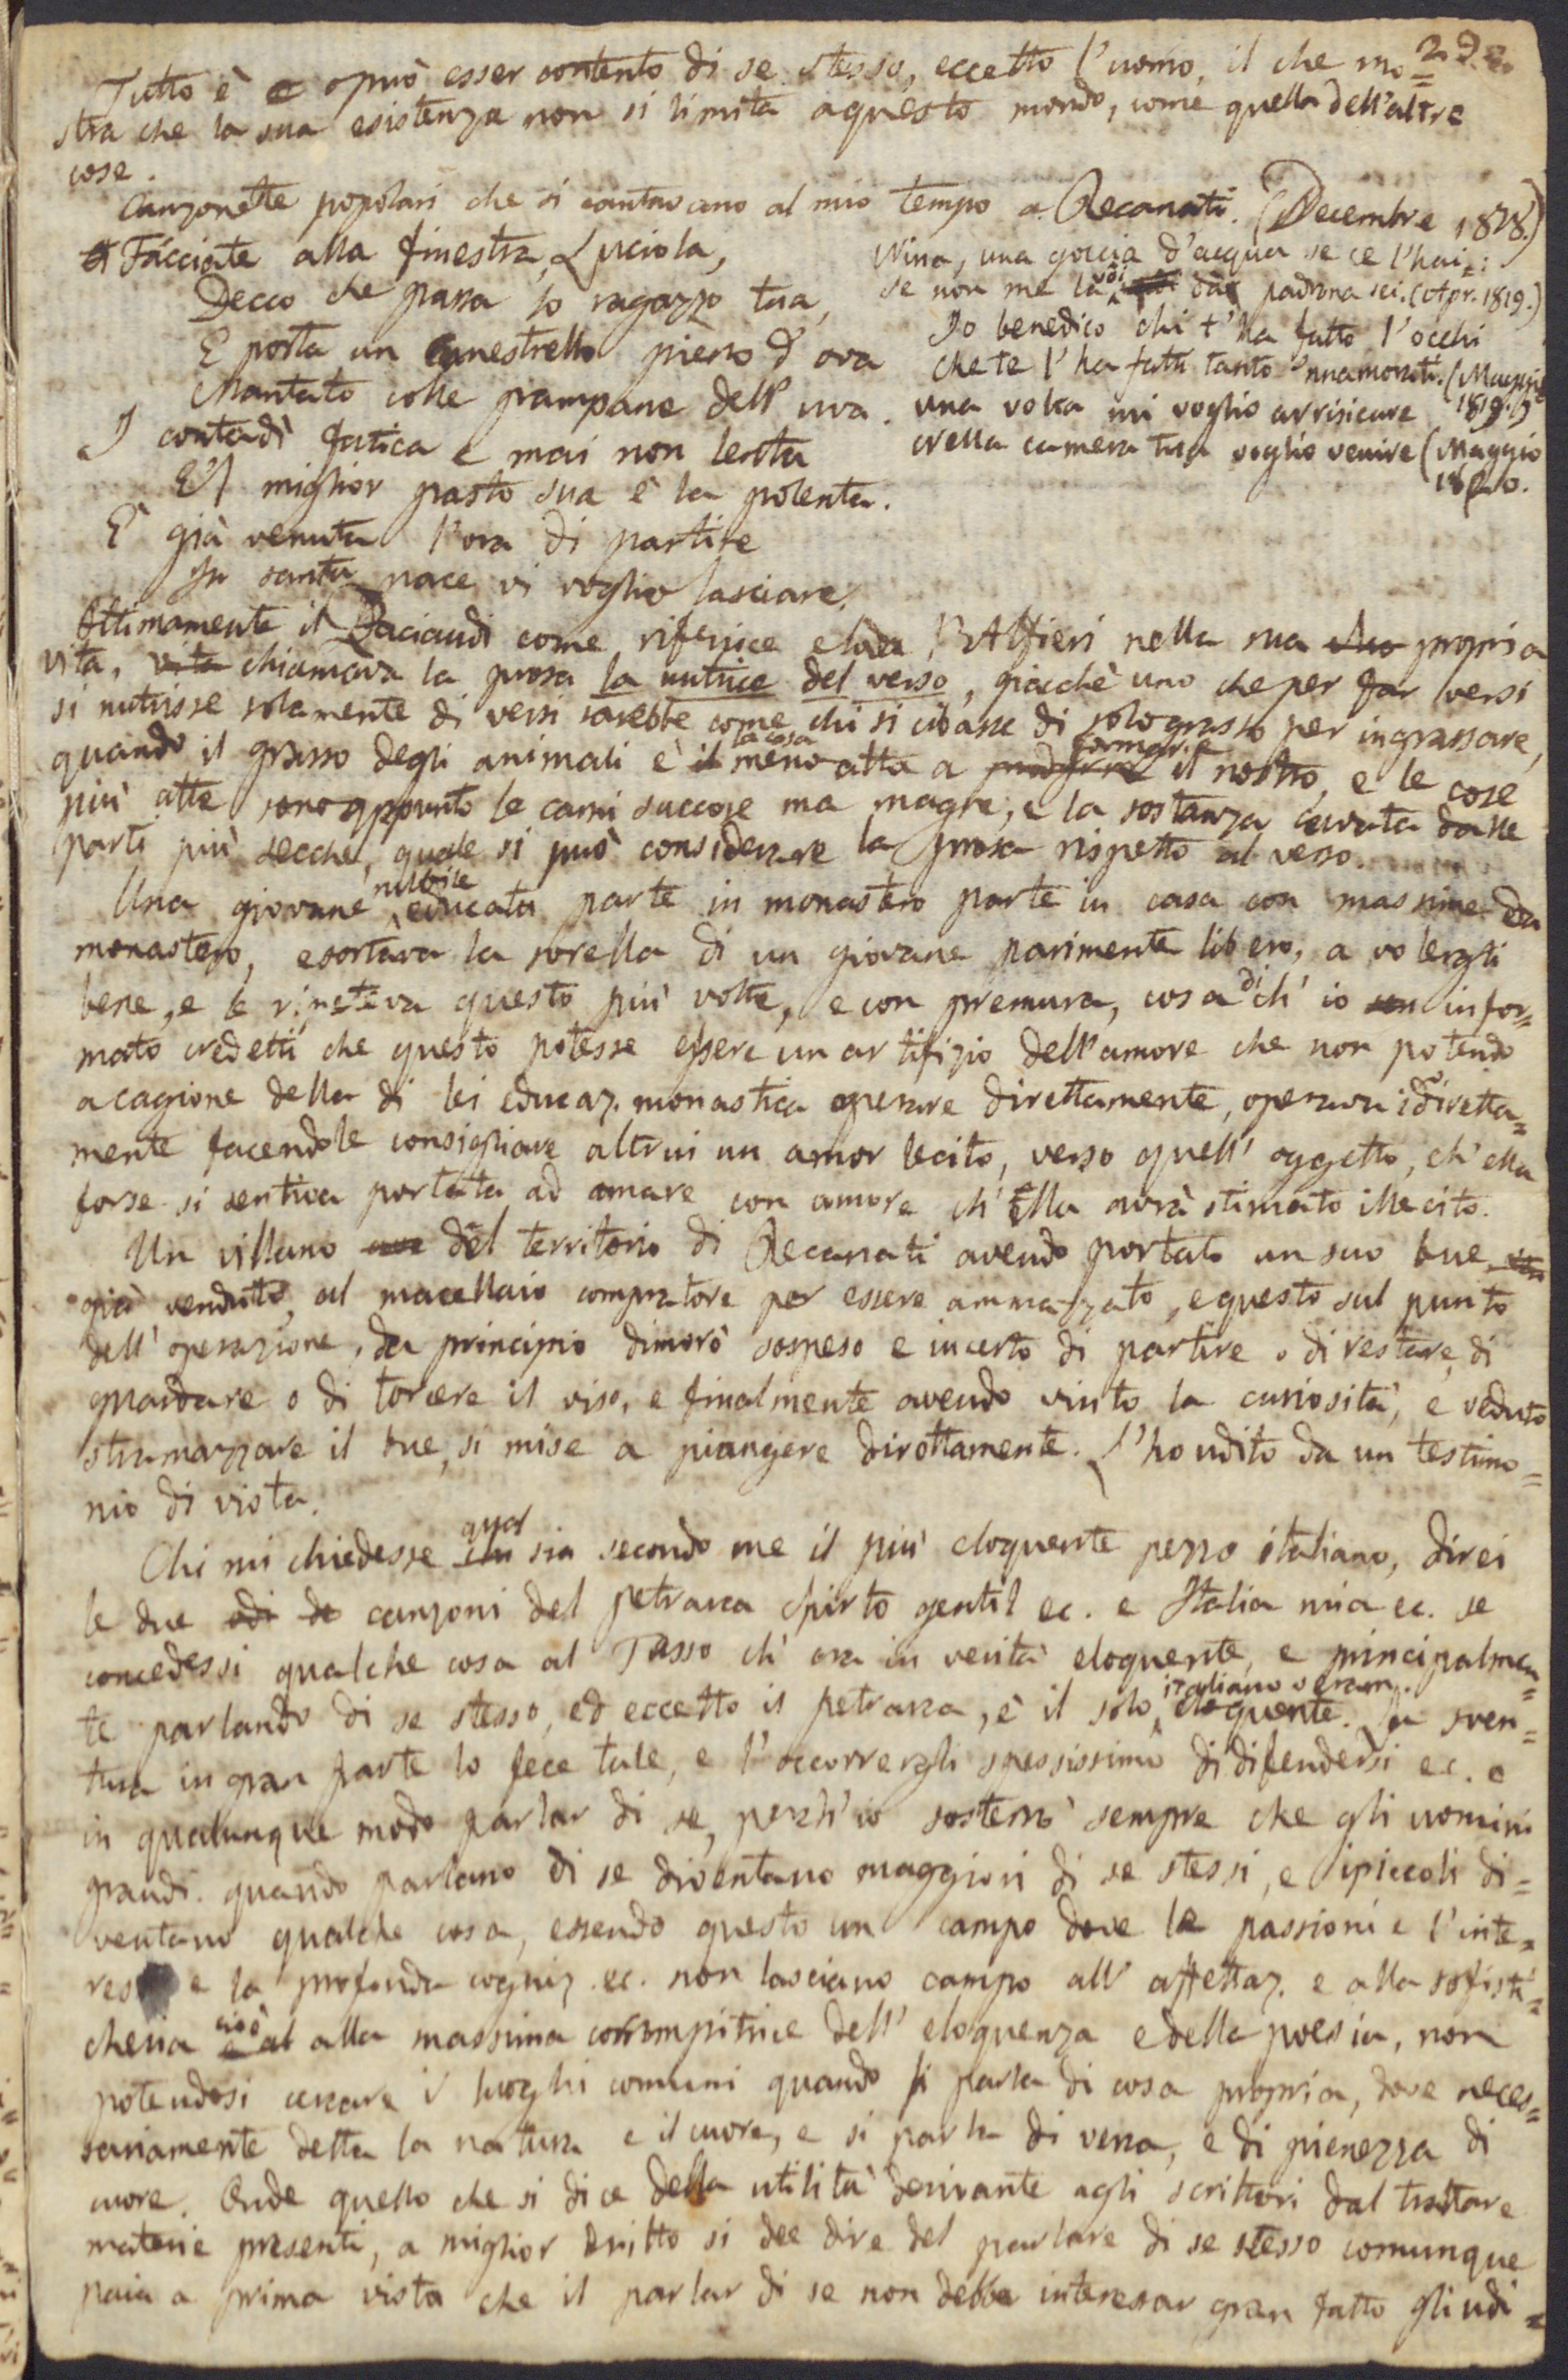 29.
Tutto è o può esser contento di se stesso, eccetto l'uomo, il che mo=
stra che la sua esistenza non si limita a questo mondo, come quella dell'altre
cose.
Canzonette popolari che si cantavano al mio tempo a Recanati. (Decembre 1818.)
Fàcciate alla finestra, Luciola,
Decco che passa lo ragazzo tua,
E porta un canestrello pieno d'ova
Mantato colle pampane dell'uva.
I contadì fatica e mai non lenta
E 'l miglior pasto sua è la polenta.
È già venuta l'ora di partire
In santa pace vi voglio lasciare.
Nina, una goccia d'acqua se ce l'hai:
Se non me la voi dà padrona sei. (Apr. 1819.)
Io benedico chi t'ha fatto l'occhi
Che te l'ha fatti tanto 'nnamorati. (Maggio
1819.)
Una volta mi voglio arrisicare
Nella camera tua voglio venire (Maggio
1820.
Ottimamente il Paciaudi come riferisce e loda l'Alfieri nella sua propria
vita, vita chiamava la prosa la nutrice del verso, giacchè uno che per far versi
si nutrisse solamente di versi sarebbe come chi si cibasse di solo grasso per ingrassare,
quando il grasso degli animali è il la cosa meno atta a formare il nostro, e le cose
più atte sono appunto le carni succose ma magre, e la sostanza cavata dalle
parti più secche, quale si può considerare la prosa rispetto al verso.
Una giovane nubile educata parte in monastero parte in casa con massime da
monastero, esortava la sorella di un giovane parimente libero, a volergli
bene, e le ripeteva questo più volte, e con premura, cosa di ch'io infor=
mato credetti che questo potesse essere un artifizio dell'amore che non potendo
a cagione della di lei educaz. monastica operare direttamente, operava indiretta=
mente facendole consigliare altrui un amor lecito, verso quell'oggetto, ch'ella
forse si sentiva portata ad amare con amore ch'ella avrà stimato illecito.
Un villano del territorio di Recanati avendo portato un suo bue,
già venduto, al macellaio compratore per essere ammazzato, e questo sul punto
dell'operazione, da principio dimorò sospeso e incerto di partire o di restare, di
guardare o di torcere il viso, e finalmente avendo vinto la curiosità, e veduto
stramazzare il bue, si mise a piangere dirottamente. L'ho udito da un testimo=
nio di vista.
Chi mi chiedesse qual sia secondo me il più eloquente pezzo italiano, direi
le due canzoni del petrarca Spirto gentil ec. e Italia mia ec. se
concedessi qualche cosa al Tasso ch'era in verità eloquente, e principalmen=
te parlando di se stesso, ed eccetto il petrarca, è il solo italiano veram. eloquente. La sven=
tura in gran parte lo fece tale, e l'occorrergli spessissimo di difendersi ec. o
in qualunque modo parlar di se, perch'io sosterrò sempre che gli uomini
grandi quando parlano di se diventano maggiori di se stessi, e i piccoli di=
ventano qualche cosa, essendo questo un campo dove le passioni e l'inte=
resse e la profonda cogniz. ec. non lasciano campo all'affettaz. e alla sofisti=
cheria cioè alla massima corrompitrice dell'eloquenza e della poesia, non
potendosi cercare i luoghi comuni quando si parla di cosa propria, dove neces=
sariamente detta la natura e il cuore, e si parla di vena, e di pienezza di
cuore. Onde quello che si dice della utilità derivante agli scrittori dal trattare
materie presenti, a miglior dritto si dee dire del parlare di se stesso comunque
paia a prima vista che il parlar di se non debba interessar gran fatto gli udi=